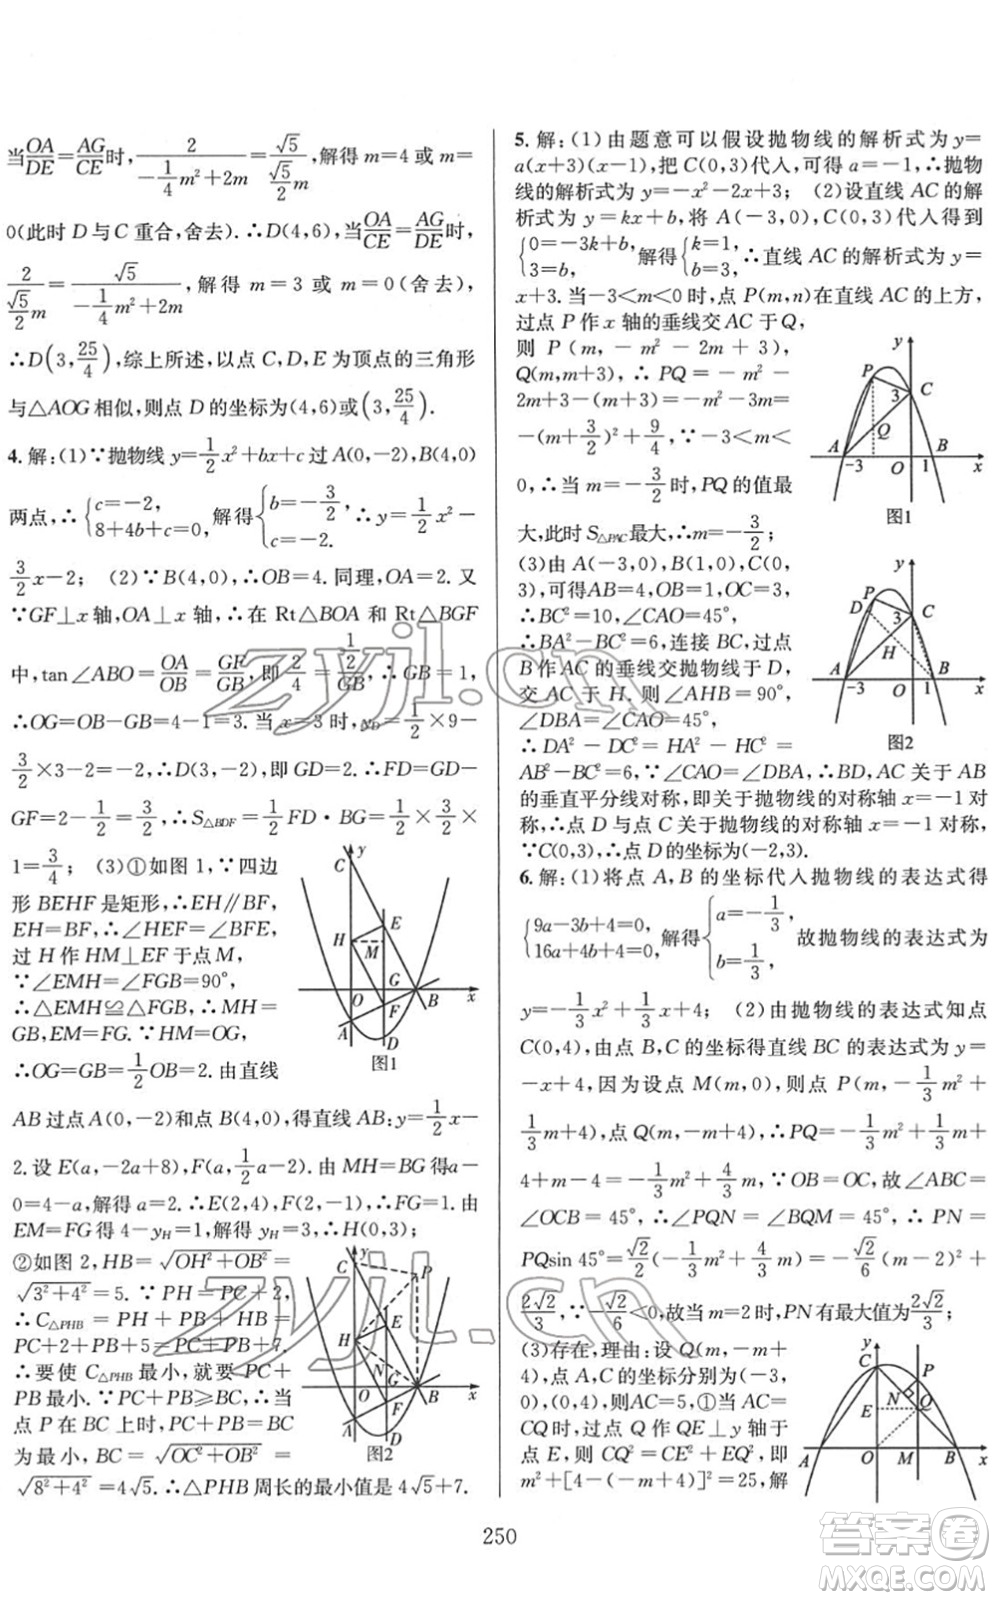 当OA/DE=AG/CE时,2/(-1/4m²+2m)=√5/(√5/2 m),解得 m=4 或 m=
0(此时 D 与 C 重合,舍去).∴D(4,6),当OA/CE=AG/DE时,
2/(√5/2 m)=√5/(-1/4m²+2m),解得 m=3 或 m=0(舍去),
∴D(3,25/4),综上所述,以点 C,D,E 为顶点的三角形
与△AOG 相似,则点 D 的坐标为(4,6)或(3,25/4).
4.解:(1)∵抛物线 y=1/2x²+bx+c 过 A(0,-2),B(4,0)
两点,∴{c=-2, 8+4b+c=0, 解得{b=-3/2, c=-2. ∴y=1/2x²-
3/2x-2; (2)∵B(4,0),∴OB=4.同理,OA=2.又
∵GF⊥x 轴,OA⊥x 轴,∴在 Rt△BOA 和 Rt△BGF
中,tan∠ABO=OA/OB=GF/GB,即2/4=(1/2)/GB,∴GB=1,
∴OG=OB-GB=4-1=3.当 x=3 时,yD=1/2×9-
3/2×3-2=-2,∴D(3,-2),即 GD=2.∴FD=GD-
GF=2-1/2=3/2,∴S△BDF=1/2FD·BG=1/2×3/2×
1=3/4; (3)①如图 1,∵四边
形 BEHF 是矩形,∴EH∥BF,
EH=BF,∴∠HEF=∠BFE,
过 H 作 HM⊥EF 于点 M,
∵∠EMH=∠FGB=90°,
∴△EMH≌△FGB,∴MH=
GB,EM=FG.∵HM=OG,
∴OG=GB=1/2OB=2.由直线
AB 过点 A(0,-2)和点 B(4,0),得直线 AB:y=1/2x-
2.设 E(a,-2a+8),F(a,1/2a-2).由 MH=BG 得 a-
0=4-a,解得 a=2.∴E(2,4),F(2,-1),∴FG=1.由
EM=FG 得 4-yH=1,解得 yH=3,∴H(0,3);
②如图 2,HB=√OH²+OB²=
√3²+4²=5.∵PH=PC+2,
∴C△PHB=PH+PB+HB=
PC+2+PB+5=PC+PB+7.
∴要使 C△PHB 最小,就要 PC+
PB 最小.∵PC+PB≥BC,∴当
点 P 在 BC 上时,PC+PB=BC
为最小,BC=√OC²+OB²=
√8²+4²=4√5.∴△PHB 周长的最小值是 4√5+7.
y
C
E
H
M
G
O
B
x
F
A
D
图1
y
C
P
E
H
N
G
O
B
x
F
A
D
图2
5.解:(1)由题意可以假设抛物线的解析式为 y=
a(x+3)(x-1),把 C(0,3)代入,可得 a=-1,∴抛物
线的解析式为 y=-x²-2x+3; (2)设直线 AC 的解
析式为 y=kx+b,将 A(-3,0),C(0,3)代入得到
{0=-3k+b, 3=b, 解得{k=1, b=3, ∴直线 AC 的解析式为 y=
x+3.当-3<m<0 时,点 P(m,n)在直线 AC 的上方,
过点 P 作 x 轴的垂线交 AC 于 Q,
则 P(m,-m²-2m+3),
Q(m,m+3),∴PQ=-m²-
2m+3-(m+3)=-m²-3m=
-(m+3/2)²+9/4,∵-3<m<
0,∴当 m=-3/2时,PQ 的值最
大,此时 S△PAC 最大,∴m=-3/2;
(3)由 A(-3,0),B(1,0),C(0,
3),可得AB=4,OB=1,OC=3,
∴BC²=10,∠CAO=45°,
∴BA²-BC²=6,连接 BC,过点
B 作 AC 的垂线交抛物线于 D,
交 AC 于 H,则∠AHB=90°,
∠DBA=∠CAO=45°,
∴DA²-DC²=HA²-HC²=
AB²-BC²=6,∵∠CAO=∠DBA,∴BD,AC 关于 AB
的垂直平分线对称,即关于抛物线的对称轴 x=-1 对
称,∴点 D 与点 C 关于抛物线的对称轴 x=-1 对称,
∵C(0,3),∴点 D 的坐标为(-2,3).
y
P
3
C
Q
A
B
-3
O
1
x
图1
y
P
D
3
C
H
A
B
-3
O
1
x
图2
6.解:(1)将点 A,B 的坐标代入抛物线的表达式得
{9a-3b+4=0, 16a+4b+4=0, 解得{a=-1/3, b=1/3, 故抛物线的表达式为
y=-1/3x²+1/3x+4; (2)由抛物线的表达式知点
C(0,4),由点 B,C 的坐标得直线 BC 的表达式为 y=
-x+4,因为设点 M(m,0),则点 P(m,-1/3m²+
1/3m+4),点 Q(m,-m+4),∴PQ=-1/3m²+1/3m+
4+m-4=-1/3m²+4/3m,∵OB=OC,故∠ABC=
∠OCB=45°,∴∠PQN=∠BQM=45°,∴PN=
PQsin 45°=√2/2(-1/3m²+4/3m)=-√2/6(m-2)²+
2√2/3,∵-√2/6<0,故当 m=2 时,PN 有最大值为2√2/3;
(3)存在,理由:设 Q(m,-m+
4),点 A,C 的坐标分别为(-3,
0),(0,4),则AC=5,①当 AC=
CQ时,过点 Q 作 QE⊥y 轴于
点 E,则 CQ²=CE²+EQ²,即
m²+[4-(-m+4)]²=25,解
y
C
P
N
E
Q
A
O
M
B
x
250
zyjl.cn
zyjl.cn
答案卷
MXQE.COM